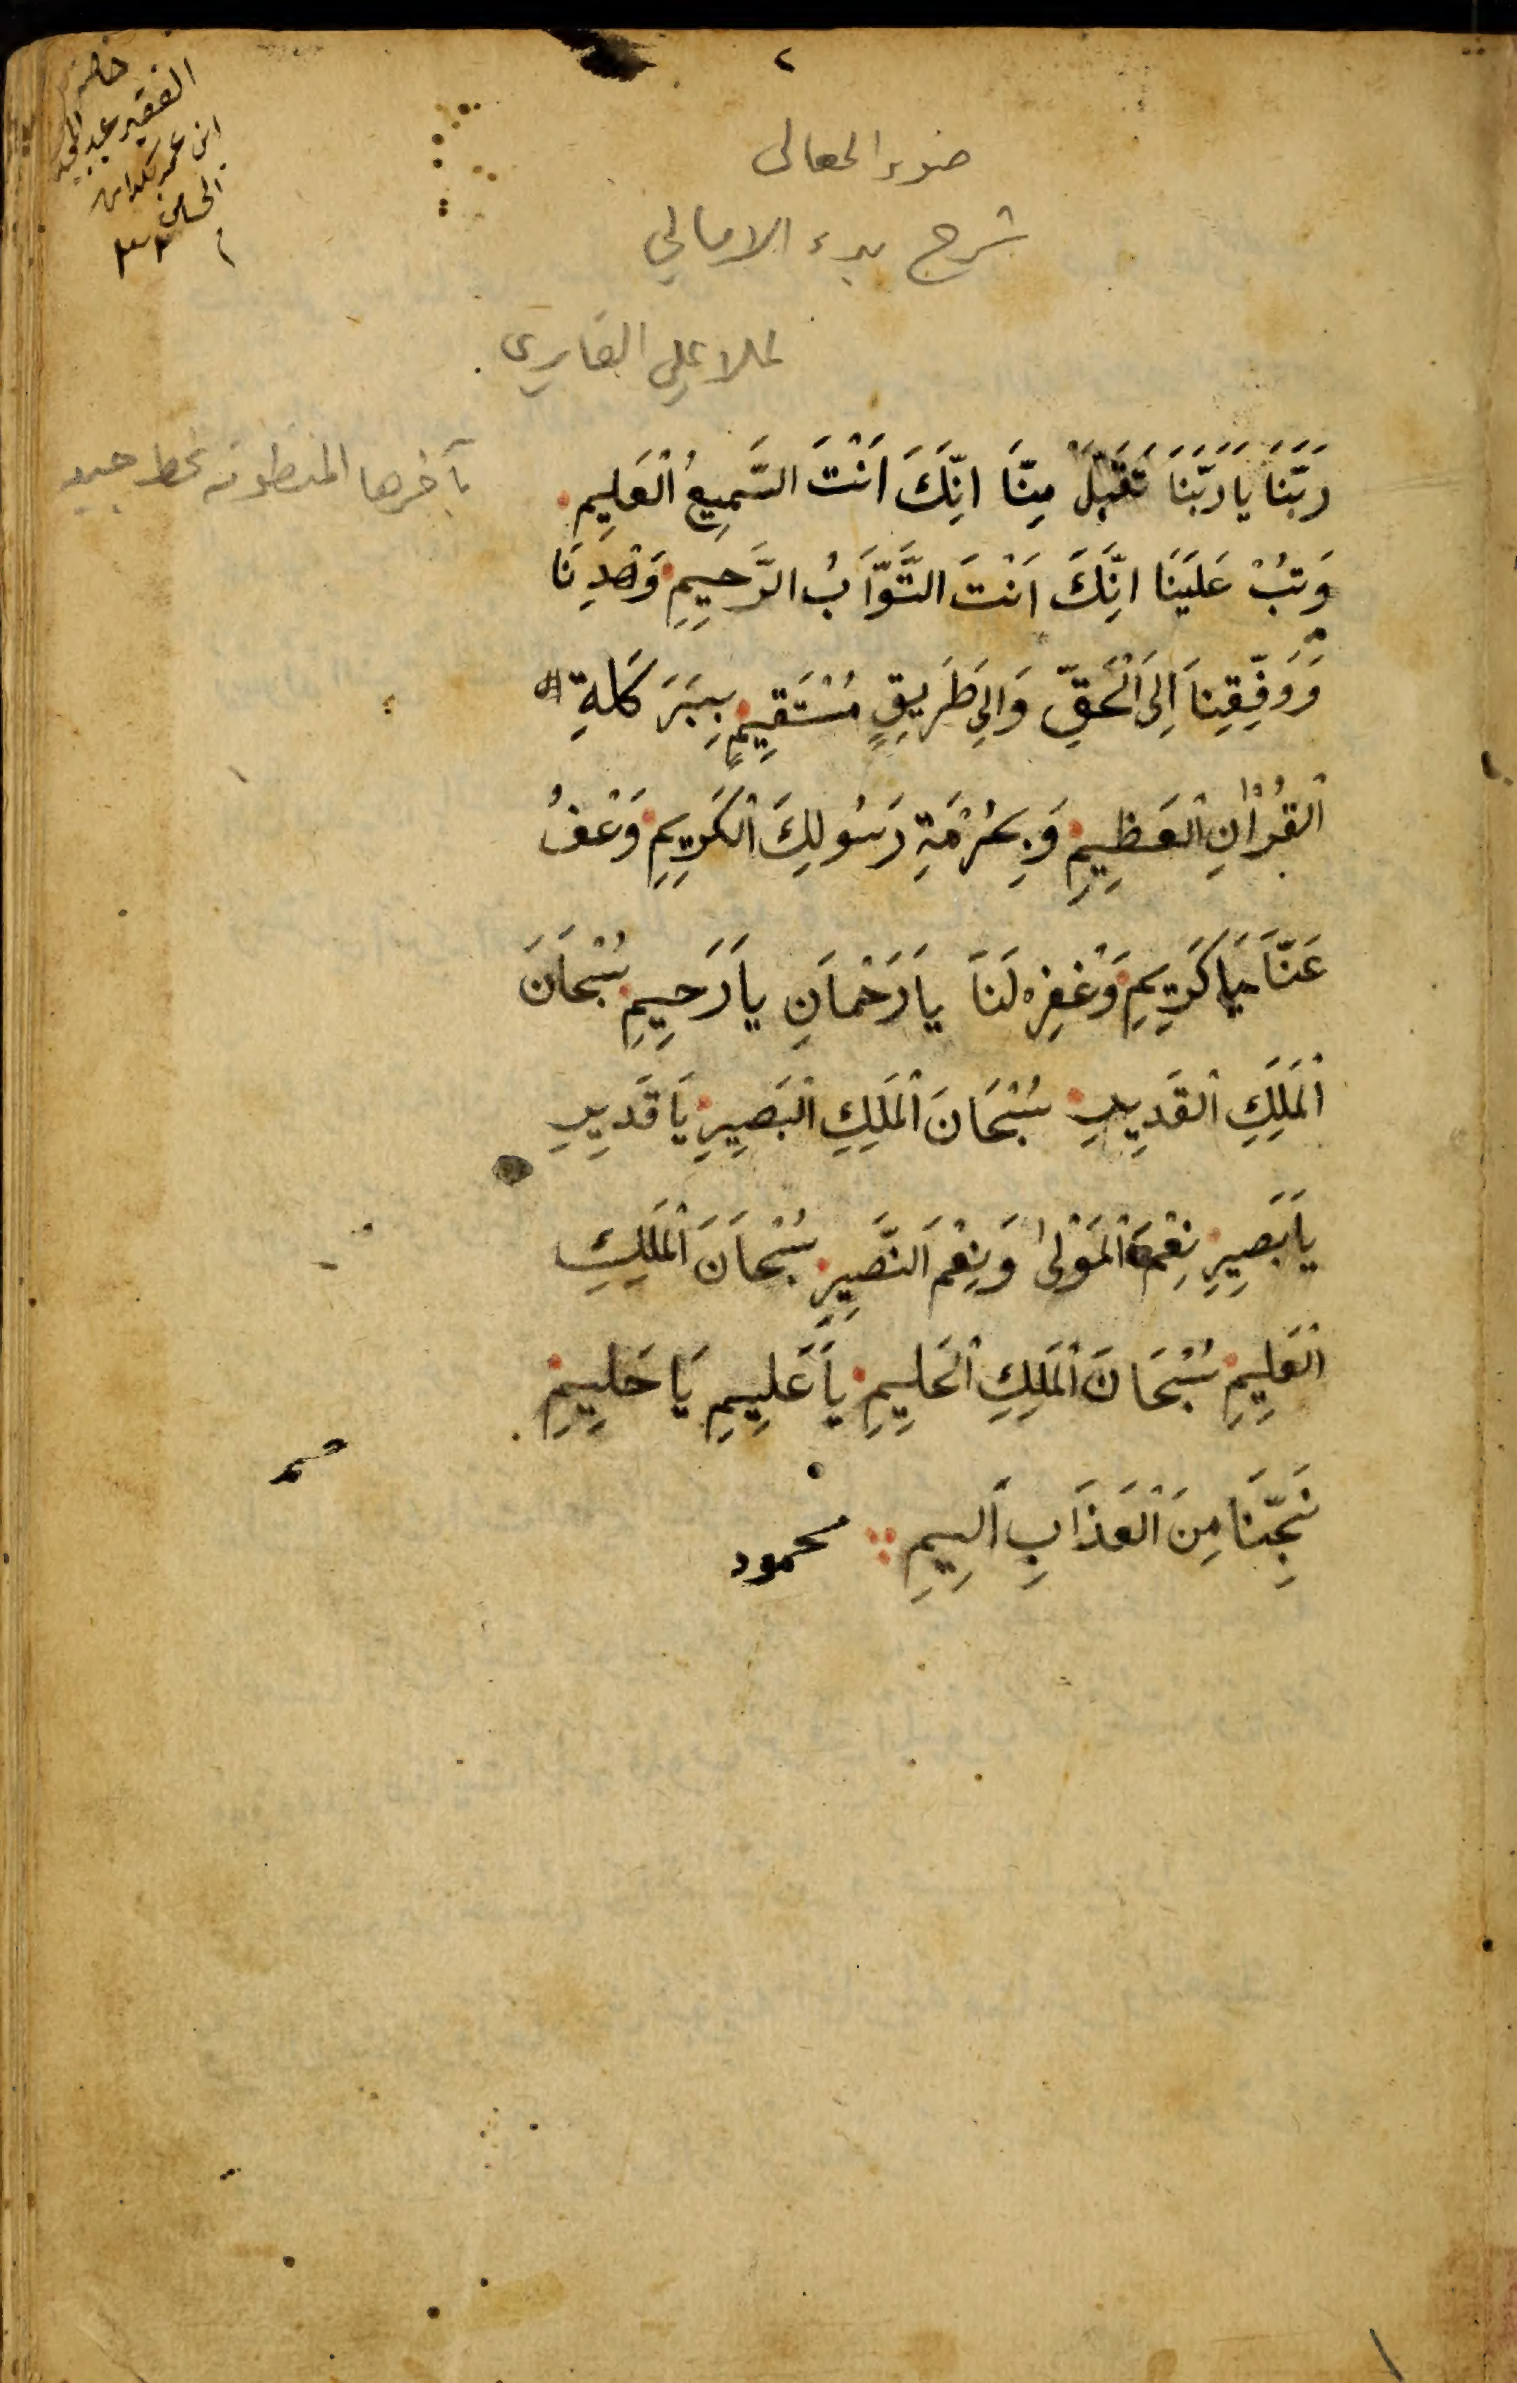 ٢
ضوء المعالى
شرح بدء الامالي
لملا علي القاري
بآخرها المنظومة بخط جيد
الفقير عبد
ابن عمر
رَبَّنَا يَا رَبَّنَا تَقَبَّلْ مِنَّا اِنَّكَ اَنْتَ السَّمِيعُ الْعَلِيمِ
وَتُبْ عَلَيْنَا اِنَّكَ اَنْتَ التَّوَّابُ الرَّحِيمِ وَهْدِنَا
وَوَفِّقِنَا اِلَى الْحَقِّ وَاِلِى طَرِيقٍ مُسْتَقِيمٍ بِبَرَكَاةِ
الْقُرْاٰنِ الْعَظِيمِ وَبِحُرْمَةِ رَسُولِكَ الْكَرِيمِ وَعْفُ
عَنَّا يَا كَرِيمِ وَغْفِرْ لَنَا يَا رَحْمَانِ يَا رَحِيمِ سُبْحَانَ
الْمَلِكِ الْقَدِيرِ سُبْحَانَ الْمَلِكِ الْبَصِيرِ يَا قَدِيرِ
يَا بَصِيرِ نِعْمَ الْمَوْلٰى وَنِعْمَ النَّصِيرِ سُبْحَانَ الْمَلِكِ
الْعَلِيمِ سُبْحَانَ الْمَلِكِ الْحَلِيمِ يَا عَلِيمِ يَا حَلِيمِ
نَجِّنَا مِنَ الْعَذَابِ اَلِيمِ محمود